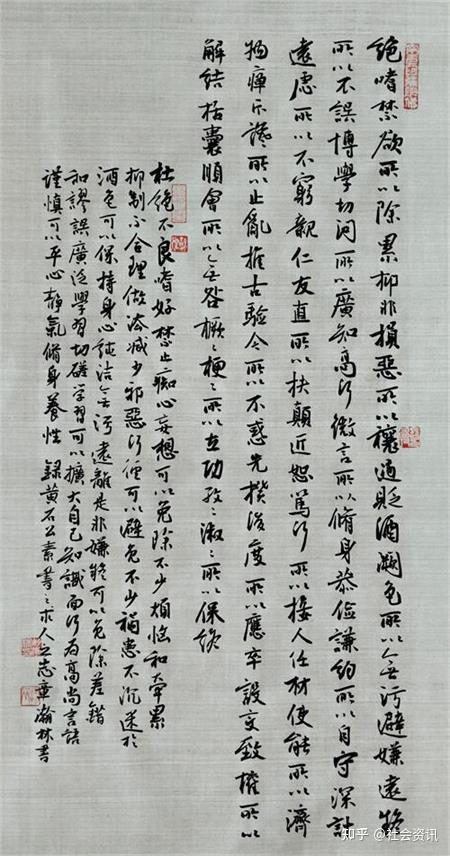 絕嗜禁欲所以除累抑非損惡所以禳過貶酒闕色所以無污避嫌遠疑
所以不誤博學切问所以廣知高行微言所以脩身恭儉謙約所以自守深計
遠慮所以不窮親仁友直所以扶顛近恕篤行所以接人任材使能所以濟
物癉斥讒所以止亂推古驗今所以不惑先揆後度所以應卒設变致權所以
解结括囊順會所以無咎橛々梗々所以立功孜々淑々所以保終
杜絕不良嗜好禁止痴心妄想可以免除不少煩惱和牵累
抑制不合理做法减少邪惡行徑可以避免不少禍患不沉迷於
酒色可以保持身心純洁無污遠離是非嫌疑可以免除差錯
和謬誤廣泛學習切磋学習可以擴大自己知識面行为高尚言語
謹慎可以平心静氣脩身養性 録黄石公素書之求人之志章瀚林書
知乎 @社会资讯